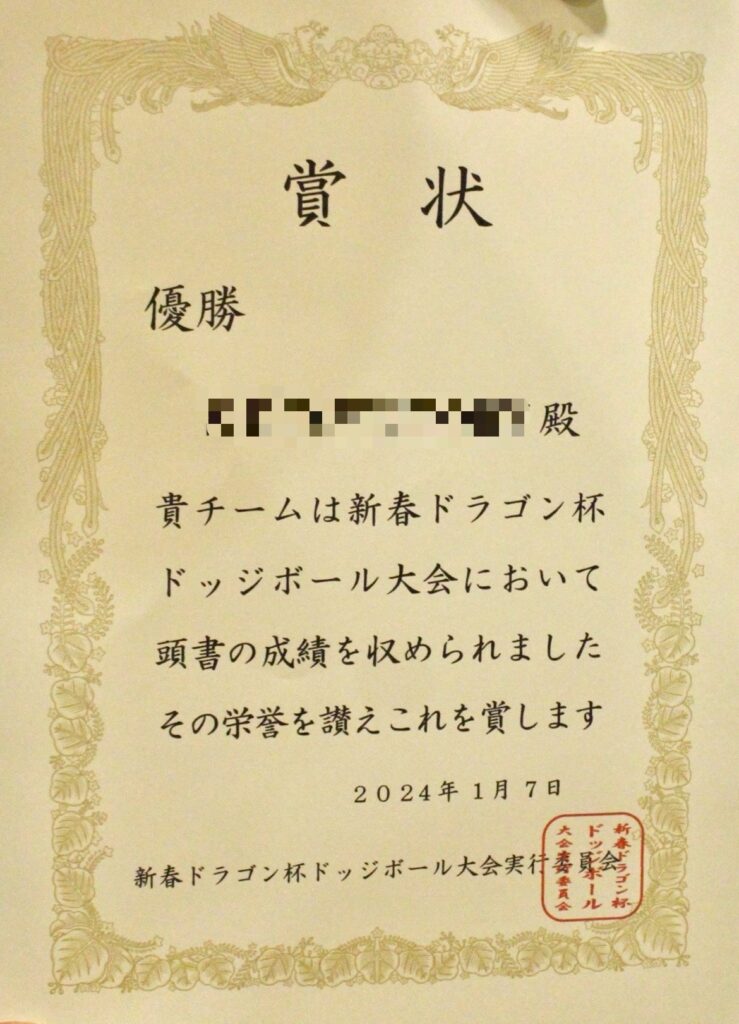 賞状
優勝
殿
貴チームは新春ドラゴン杯
ドッジボール大会において
頭書の成績を収められました
その栄誉を讃えこれを賞します
2024年1月7日
新春ドラゴン杯ドッジボール大会実行委員会
新春ドラゴン杯
ドッジボール
大会実行委員会